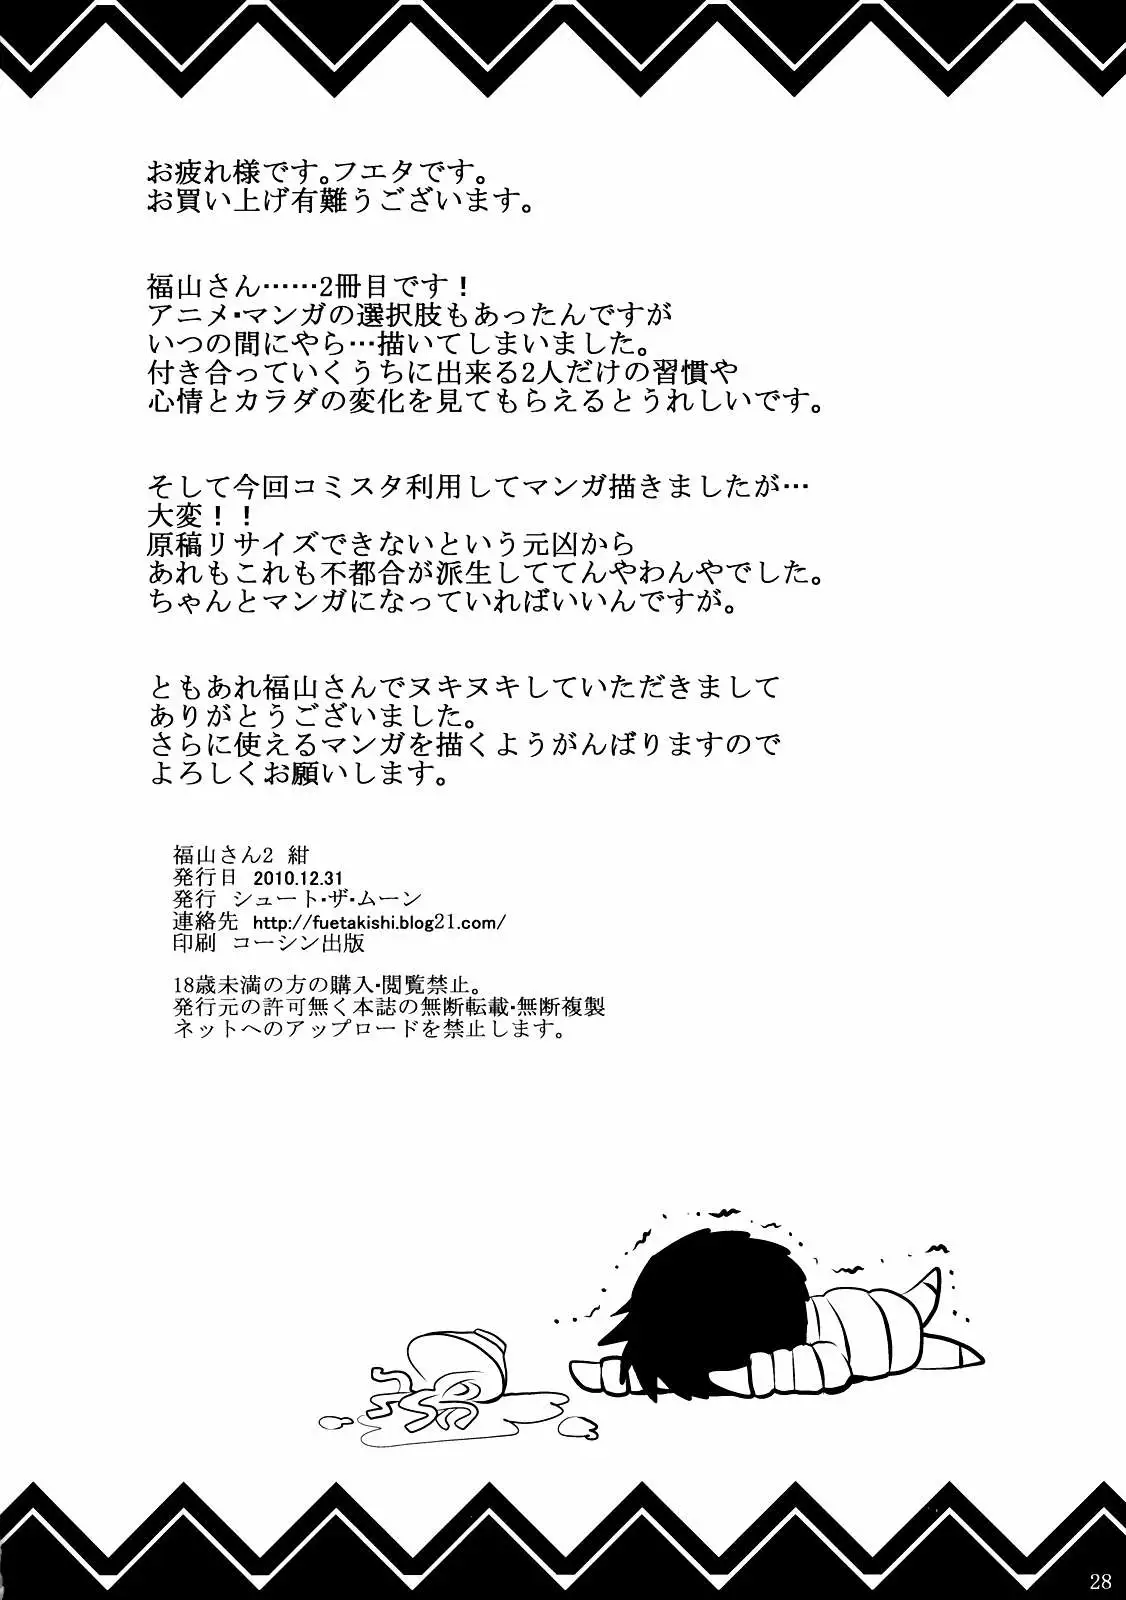 お疲れ様です。フエタです。
お買い上げ有難うございます。
福山さん……2冊目です！
アニメ・マンガの選択肢もあったんですが
いつの間にやら…描いてしまいました。
付き合っていくうちに出来る2人だけの習慣や
心情とカラダの変化を見てもらえるとうれしいです。
そして今回コミスタ利用してマンガ描きましたが…
大変！！
原稿リサイズできないという元凶から
あれもこれも不都合が派生しててんやわんやでした。
ちゃんとマンガになっていればいいんですが。
ともあれ福山さんでヌキヌキしていただきまして
ありがとうございました。
さらに使えるマンガを描くようがんばりますので
よろしくお願いします。
福山さん2 紺
発行日 2010.12.31
発行 シュート・ザ・ムーン
連絡先 http://fuetakishi.blog21.com/
印刷 コーシン出版
18歳未満の方の購入・閲覧禁止。
発行元の許可無く本誌の無断転載・無断複製
ネットへのアップロードを禁止します。
28